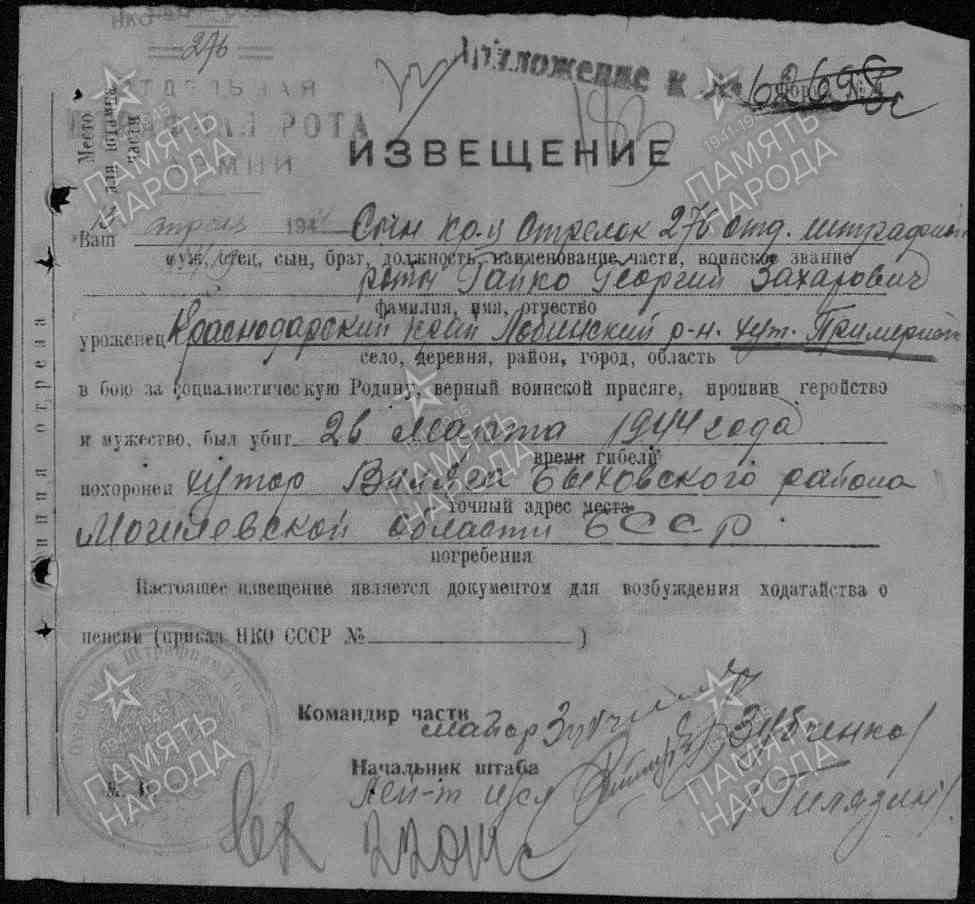 НКО
276
ОТДЕЛЬНАЯ
РОТА
АРМИИ
Место для штампа части
Приложение к №
Форма №
ИЗВЕЩЕНИЕ
апреля 194
Ваш Сын кр-ц Стрелок 276 отд. штрафной
муж, отец, сын, брат, должность, наименование части, воинское звание
роты Гайко Георгий Захарович
фамилия, имя, отчество
уроженец Краснодарский край Лабинский р-н. хут.
село, деревня, район, город, область
в бою за социалистическую Родину, верный воинской присяге, проявив геройство
и мужество, был убит 26 Марта 1944 года
время гибели
похоронен хутор Быховского района
точный адрес места
Могилевской области БССР
погребения
Настоящее извещение является документом для возбуждения ходатайства о
пенсии (приказ НКО СССР № )
Командир части
майор Зубченко
Начальник штаба
Лей-т
линия отреза
ПАМЯТЬ НАРОДА
1941-1945